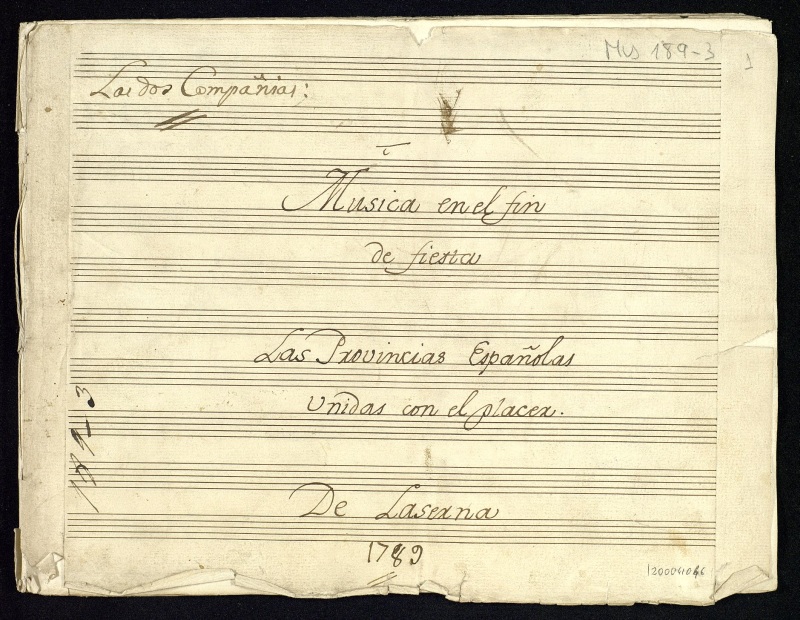 Mus 189-3
1
Las dos Compañias:
Musica en el fin
de fiesta
Las Provincias Españolas
Unidas con el placer.
De Laserna
1789